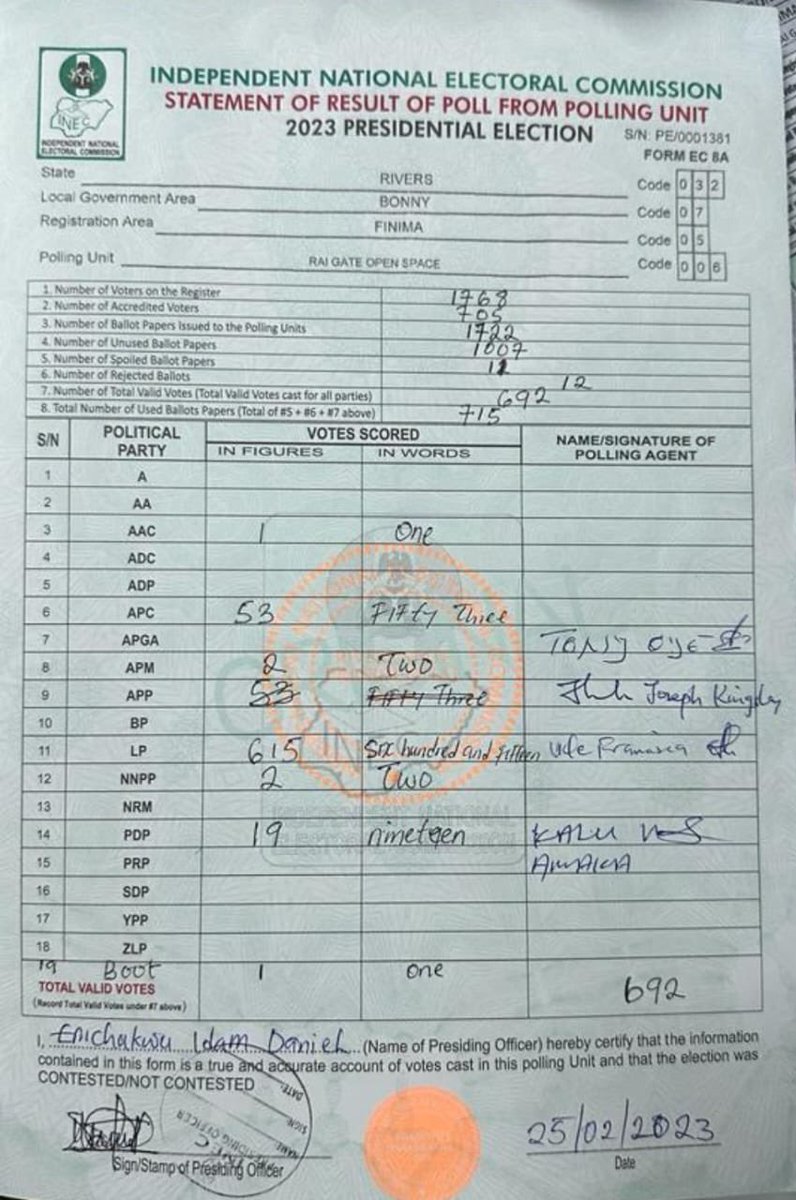 INDEPENDENT NATIONAL ELECTORAL COMMISSION
STATEMENT OF RESULT OF POLL FROM POLLING UNIT
2023 PRESIDENTIAL ELECTION S/N: PE/0001381
FORM EC 8A
INEC
INDEPENDENT NATIONAL
ELECTORAL COMMISSION
State RIVERS Code 0 3 2
Local Government Area BONNY Code 0 7
Registration Area FINIMA Code 0 5
Polling Unit RAI GATE OPEN SPACE Code 0 0 6
1. Number of Voters on the Register 1768
2. Number of Accredited Voters 705
3. Number of Ballot Papers Issued to the Polling Units 1722
4. Number of Unused Ballot Papers 1007
5. Number of Spoiled Ballot Papers 11
6. Number of Rejected Ballots 12
7. Number of Total Valid Votes (Total Valid Votes cast for all parties) 692
8. Total Number of Used Ballots Papers (Total of #5 + #6 + #7 above) 715
S/N POLITICAL PARTY VOTES SCORED NAME/SIGNATURE OF POLLING AGENT
IN FIGURES IN WORDS
1 A
2 AA
3 AAC 1 One
4 ADC
5 ADP
6 APC 53 Fifty Three
7 APGA TONY
8 APM 2 Two
9 APP 53 Fifty Three Joseph
10 BP
11 LP 615 Six hundred and fifteen
12 NNPP 2 Two
13 NRM
14 PDP 19 nineteen KALU
15 PRP
16 SDP
17 YPP
18 ZLP
19 Boot 1 one
TOTAL VALID VOTES 692
(Record Total Valid Votes under #7 above)
I, Idam Daniel (Name of Presiding Officer) hereby certify that the information
contained in this form is a true and accurate account of votes cast in this polling Unit and that the election was
CONTESTED/NOT CONTESTED
25/02/2023
Sign/Stamp of Presiding Officer Date